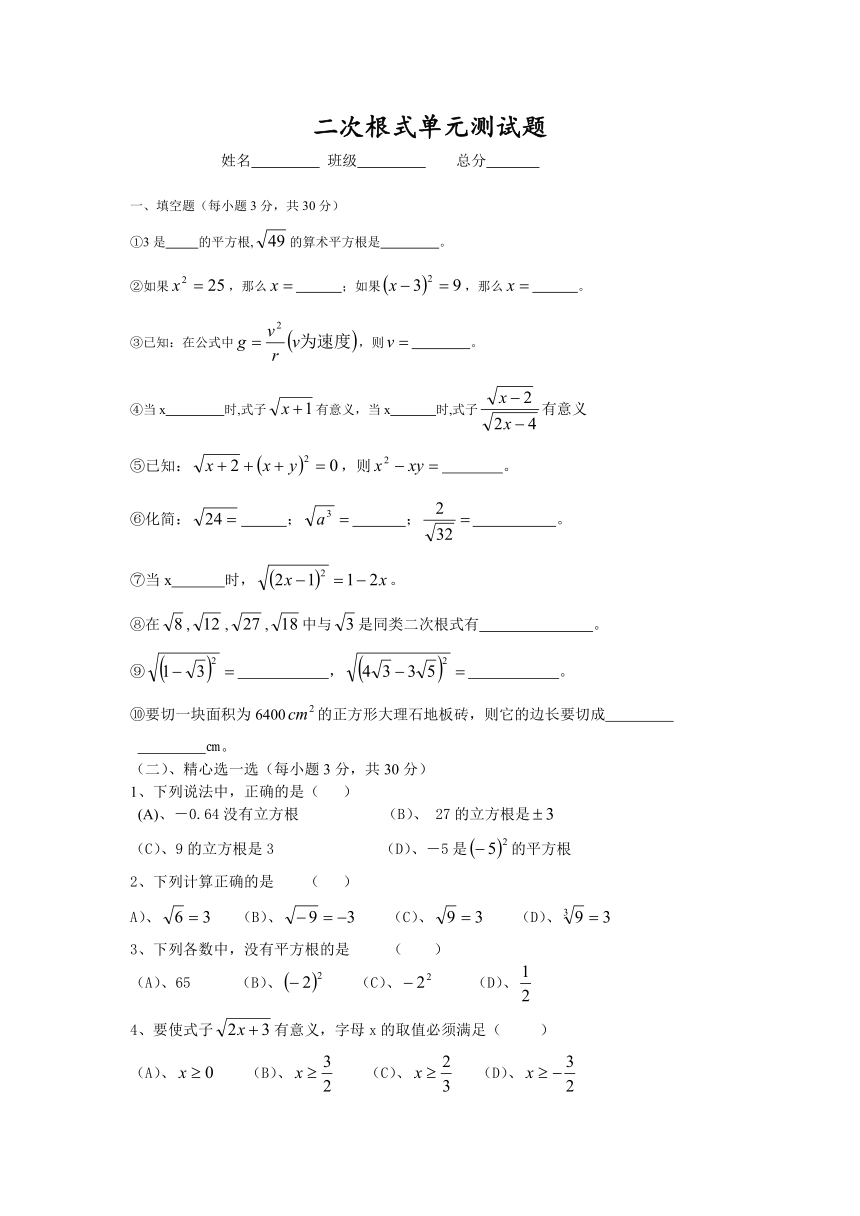 二次根式单元测试题
姓名_________ 班级_________ 总分_______
一、填空题（每小题3分，共30分）
①3是____的平方根,√49的算术平方根是________。
②如果x²=25，那么x=______；如果(x-3)²=9，那么x=______。
③已知：在公式中g=v²/r(v为速度)，则v=________。
④当x________时,式子√(x+1)有意义，当x______时,式子√(x-2)/√(2x-4)有意义
⑤已知：√(x+2)+(x+y)²=0，则x²-xy=________。
⑥化简：√(24=)______；√(a³)=_______；2/√32=___________。
⑦当x_______时，√((2x-1)²)=1-2x。
⑧在√8,√12,√27,√18中与√3是同类二次根式有_______________。
⑨√((1-√3)²)=____________，√((4√3-3√5)²)=____________。
⑩要切一块面积为6400cm²的正方形大理石地板砖，则它的边长要切成_________
_________㎝。
（二）、精心选一选（每小题3分，共30分）
1、下列说法中，正确的是（ ）
(A)、－0.64没有立方根 （B）、 27的立方根是±3
（C）、9的立方根是3 （D）、－5是(-5)²的平方根
2、下列计算正确的是 （ ）
A）、√6=3 （B）、√-9=-3 （C）、√9=3 （D）、∛9=3
3、下列各数中，没有平方根的是 （ ）
（A）、65 （B）、(-2)² （C）、-2² （D）、1/2
4、要使式子√(2x+3)有意义，字母x的取值必须满足（ ）
（A）、x≥0 （B）、x≥3/2 （C）、x≥2/3 （D）、x≥-3/2